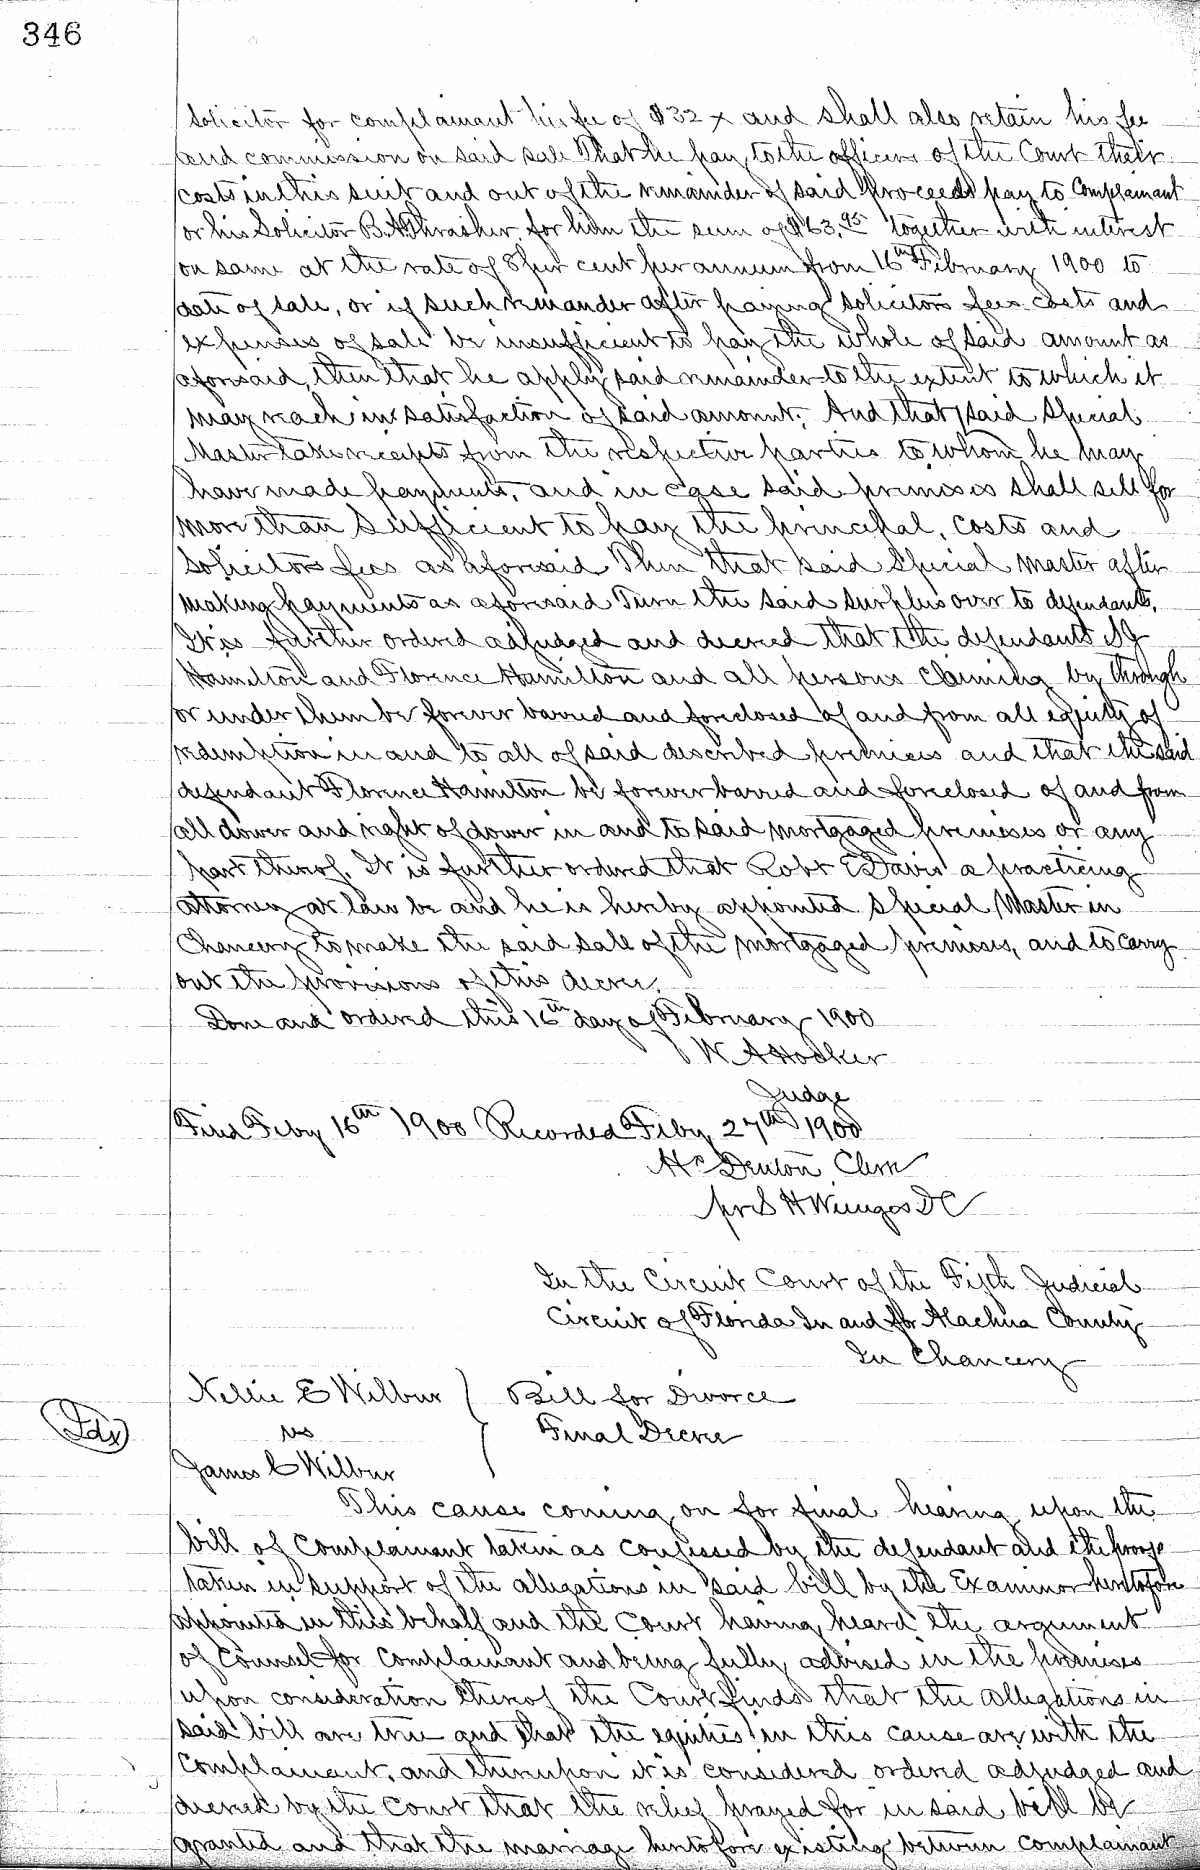 346
Solicitor for complainant his fee of $32 x and shall also retain his fee
and commission on said sale That he pay to the officers of the Court their
costs in this suit and out of the remainder of said proceeds pay to Complainant
or his Solicitor B. A Thrasher, for him the sum of $163.95 together with interest
on same at the rate of 8 per cent per annum from 16th February 1900 to
date of sale, or if such remainder after paying solicitors fees costs and
expenses of sale be insufficient to pay the whole of said amount as
aforesaid, then that he apply said remainder to the extent to which it
may reach in satisfaction of said amount. And that said Special
Master take receipts from the respective parties to whom he may
have made payments, and in case said premises shall sell for
more than sufficient to pay the principal, costs and
Solicitors fees as aforesaid Then that said Special Master after
making payments as aforesaid Turn the said surplus over to defendants.
It is further ordered adjudged and decreed that the defendants
Hamilton and Florence Hamilton and all persons claiming by through
or under them be forever barred and foreclosed of and from all equity of
redemption in and to all of said described premises and that the said
defendant Florence Hamilton be forever barred and foreclosed of and from
all dower and right of dower in and to said mortgaged premises or any
part thereof. It is further ordered that Robt E Davis a practicing
attorney at law be and he is hereby appointed Special Master in
Chancery to make the said sale of the mortgaged premises, and to carry
out the provisions of this decree.
Done and ordered this 16th day of February 1900
W A Hocker
Judge
Filed Feby 16th 1900 Recorded Feby 27th 1900
H C Denton Clerk
pr S H Wienges DC
In the Circuit Court of the Fifth Judicial
Circuit of Florida In and for Alachua County
In Chancery
Nellie E Wilbur } Bill for Divorce
Idx vs Final Decree
James C Wilbur
This cause coming on for final hearing upon the
bill of Complainant taken as confessed by the defendant and the proofs
taken in support of the allegations in said bill by the Examiner heretofore
appointed in this behalf and the Court having heard the argument
of Counsel for Complainant and being fully advised in the premises
upon consideration thereof the Court finds that the allegations in
said bill are true and that the equities in this cause are with the
Complainant, and thereupon it is considered ordered adjudged and
decreed by the Court that the relief prayed for in said bill be
granted and that the marriage heretofore existing between complainant